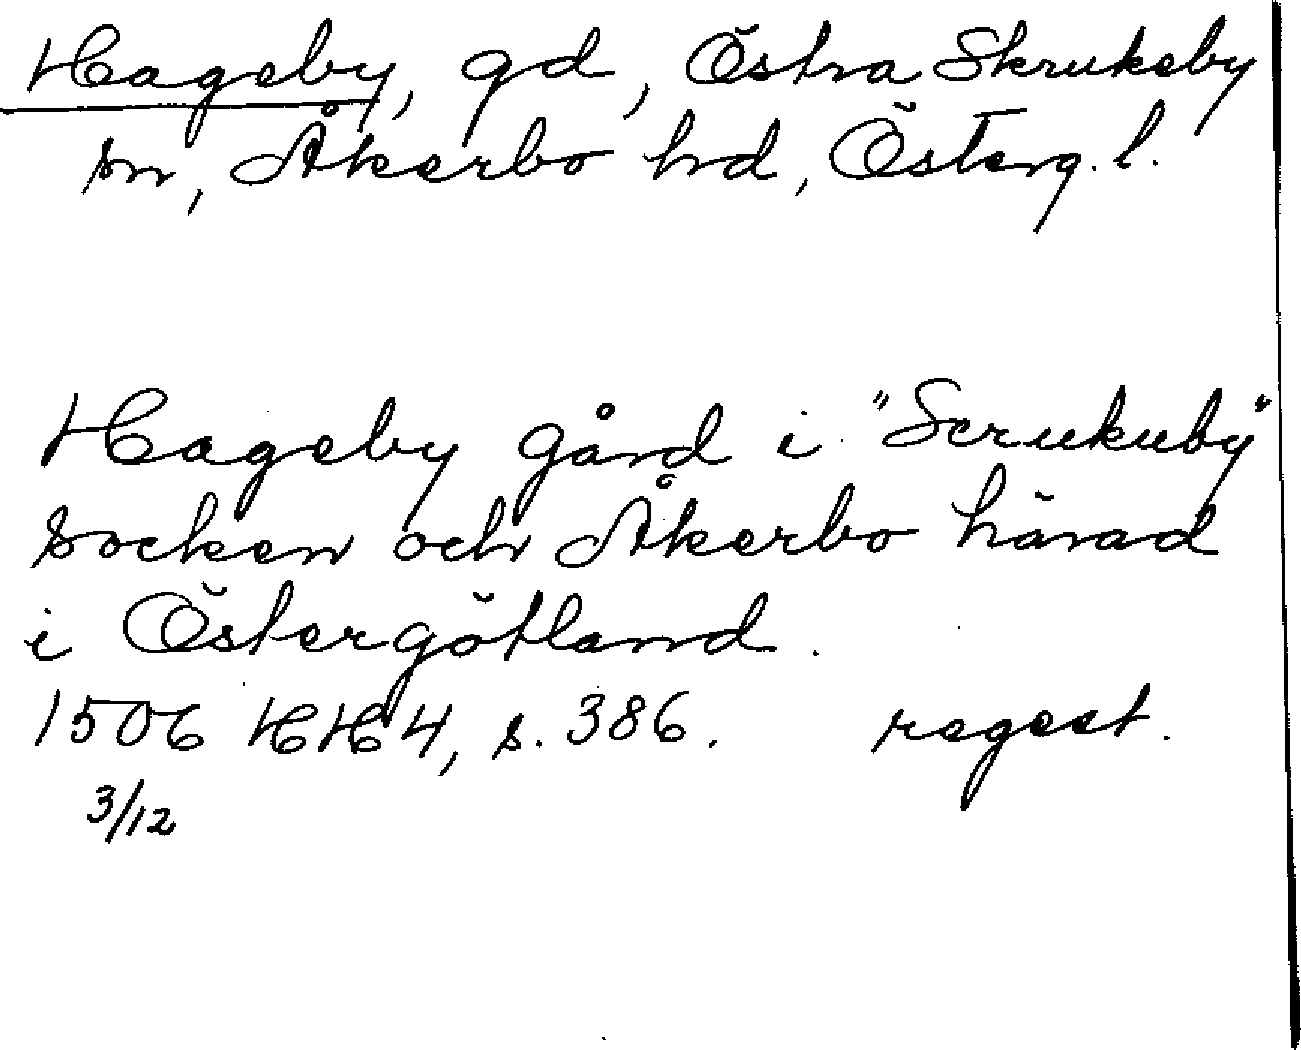 Hageby, gd, Östra Skrukeby
sn, Åkerbo hd, Österg. l.
Hageby gård i "Scrukuby"
socken och Åkerbo härad
i Östergötland.
1506 HH 4, s. 386. regest.
3/12